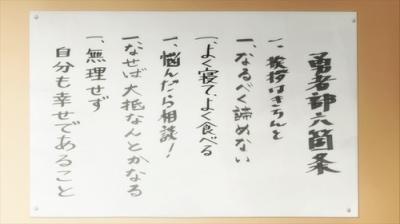 勇者部六箇条
一、挨拶はきちんと
一、なるべく諦めない
一、よく寝て、よく食べる
一、悩んだら相談！
一、なせば大抵なんとかなる
一、無理せず
自分も幸せであること